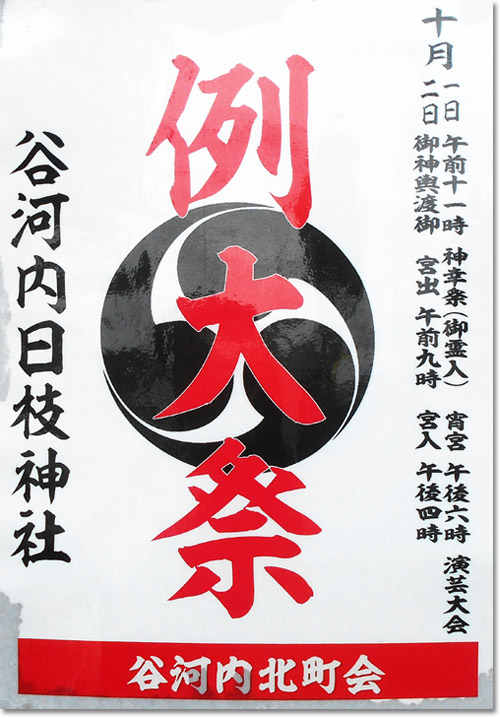 十月
一日 午前十一時 神幸祭(御霊入) 宵宮 午後六時 演芸大会
二日 御神輿渡御 宮出 午前九時 宮入 午後四時
例大祭
谷河内日枝神社
谷河内北町会